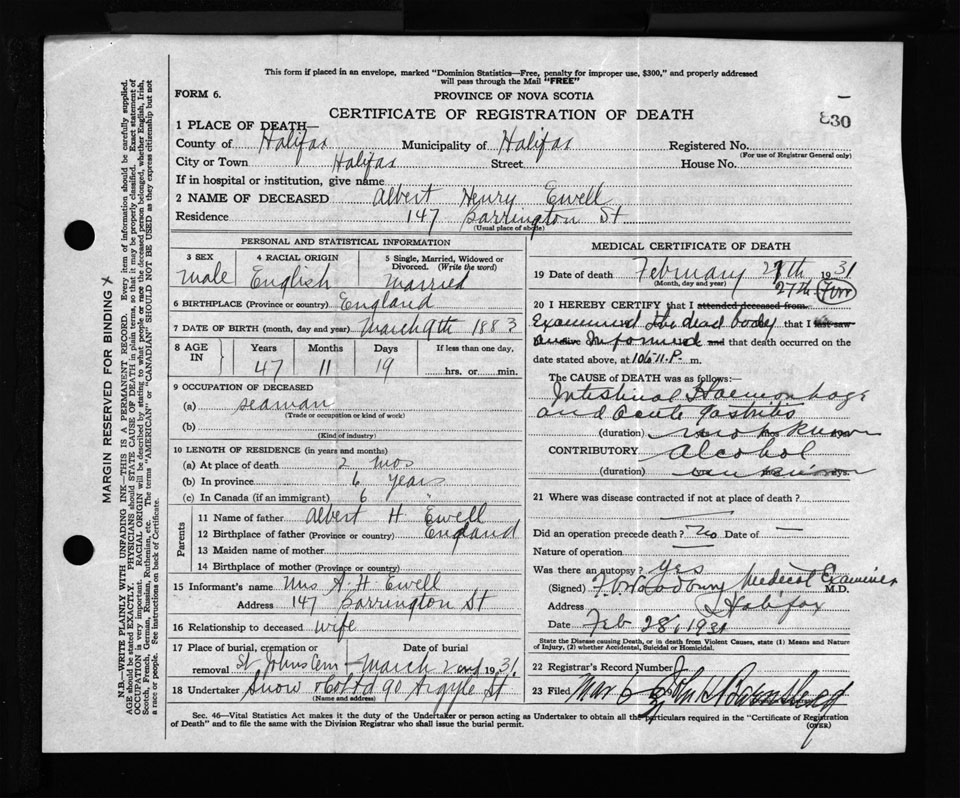 This form if placed in an envelope, marked "Dominion Statistics—Free, penalty for improper use, $300," and properly addressed
will pass through the Mail "FREE"
FORM 6.
PROVINCE OF NOVA SCOTIA
CERTIFICATE OF REGISTRATION OF DEATH
830
1 PLACE OF DEATH—
County of Halifax Municipality of Halifax Registered No.
(For use of Registrar General only)
City or Town Halifax Street House No.
If in hospital or institution, give name
2 NAME OF DECEASED Albert Henry Ewell
Residence 147 Barrington St
(Usual place of abode)
PERSONAL AND STATISTICAL INFORMATION
3 SEX 4 RACIAL ORIGIN 5 Single, Married, Widowed or
Divorced. (Write the word)
male English Married
6 BIRTHPLACE (Province or country) England
7 DATE OF BIRTH (month, day and year) March 9th 1883
8 AGE IN Years Months Days If less than one day,
47 11 19 hrs. or min.
9 OCCUPATION OF DECEASED
(a) seaman
(Trade or occupation or kind of work)
(b)
(Kind of industry)
10 LENGTH OF RESIDENCE (in years and months)
(a) At place of death 2 mos
(b) In province 6 years
(c) In Canada (if an immigrant) 6 "
Parents
11 Name of father Albert H Ewell
12 Birthplace of father (Province or country) England
13 Maiden name of mother
14 Birthplace of mother (Province or country)
15 Informant's name Mrs A. H Ewell
Address 147 Barrington St
16 Relationship to deceased wife
17 Place of burial, cremation or Date of burial
removal St Johns Cem - March 2nd 1931
18 Undertaker Snow & Co Ltd 90 Argyle St.
(Name and address)
MEDICAL CERTIFICATE OF DEATH
19 Date of death February 27th 1931
(Month, day and year)
27th
20 I HEREBY CERTIFY that I attended deceased from
Examined the dead body that I last saw
Informed and that death occurred on the
date stated above, at 10-11.P. m.
The CAUSE of DEATH was as follows:
Intestinal Haemorrhage
and Acute Gastritis
(duration) not known
CONTRIBUTORY Alcohol
(duration)
21 Where was disease contracted if not at place of death?
Did an operation precede death? No Date of —
Nature of operation
Was there an autopsy? yes
(Signed) Medical Examiner M.D.
Address Halifax
Date Feb 28, 1931
State the Disease causing Death, or in death from Violent Causes, state (1) Means and Nature
of Injury, (2) whether Accidental, Suicidal or Homicidal.
22 Registrar's Record Number
23 Filed Mar 6
Sec. 46—Vital Statistics Act makes it the duty of the Undertaker or person acting as Undertaker to obtain all the particulars required in the "Certificate of Registration
of Death" and to file the same with the Division Registrar who shall issue the burial permit.
(OVER)
MARGIN RESERVED FOR BINDING
N.B.—WRITE PLAINLY WITH UNFADING INK—THIS IS A PERMANENT RECORD. Every item of information should be carefully supplied.
AGE should be stated EXACTLY. PHYSICIANS should STATE CAUSE OF DEATH in plain terms, so that it may be properly classified. Exact statement of
OCCUPATION is very important. RACIAL ORIGIN will be described by stating to what people or race the deceased person belonged, whether English, Irish,
Scotch, French, German, Russian, Ruthenian, etc. The terms "AMERICAN" or "CANADIAN" SHOULD NOT BE USED as they express citizenship but not
a race or people. See instructions on back of Certificate.